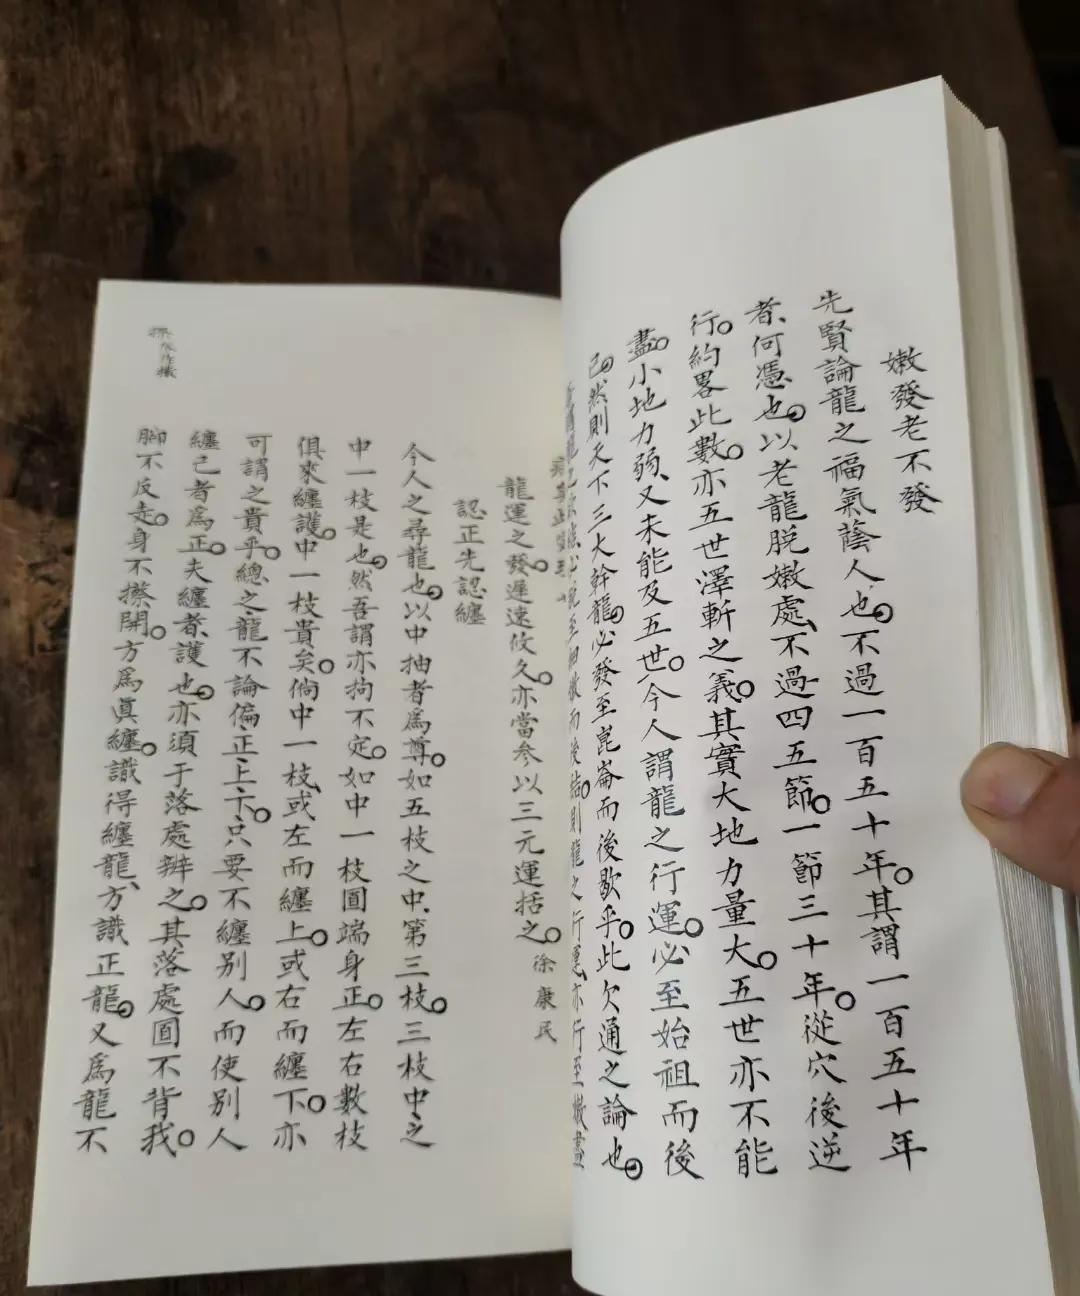 嫩發老不發
先賢論龍之福氣蔭人、也。不過一百五十年。其謂一百五十年
者、何憑也。以老龍脫嫩處、不過四五節。一節三十年。從穴後逆
行。約畧此數。亦五世澤斬之義。其實大地力量大。五世亦不能
盡。小地力弱、又未能及五世。今人謂龍之行運。必至始祖而後
已。然則天下三大幹龍。必發至崑崙而後歇乎。此欠通之論也。
而後結。則龍之行運、亦行至嫩盡
龍運之發。遲速攸久。亦當參以三元運括之。徐康民
認正先認纏
今人之尋龍也。以中抽者為尊。如五枝之中、第三枝。三枝中之
中一枝是也。然吾謂亦拘不定。如中一枝圓端身正。左右數枝
俱來纏護。中一枝貴矣。倘中一枝、或左而纏上。或右而纏下。亦
可謂之貴乎。總之、龍不論偏、正、上、下。只要不纏別人。而使別人
纏己者為正。夫纏者、護也。亦須于落處辨之。其落處面不背我。
腳不反走。身不㩟開。方為眞纏。識得纏龍、方識正龍。又為龍不